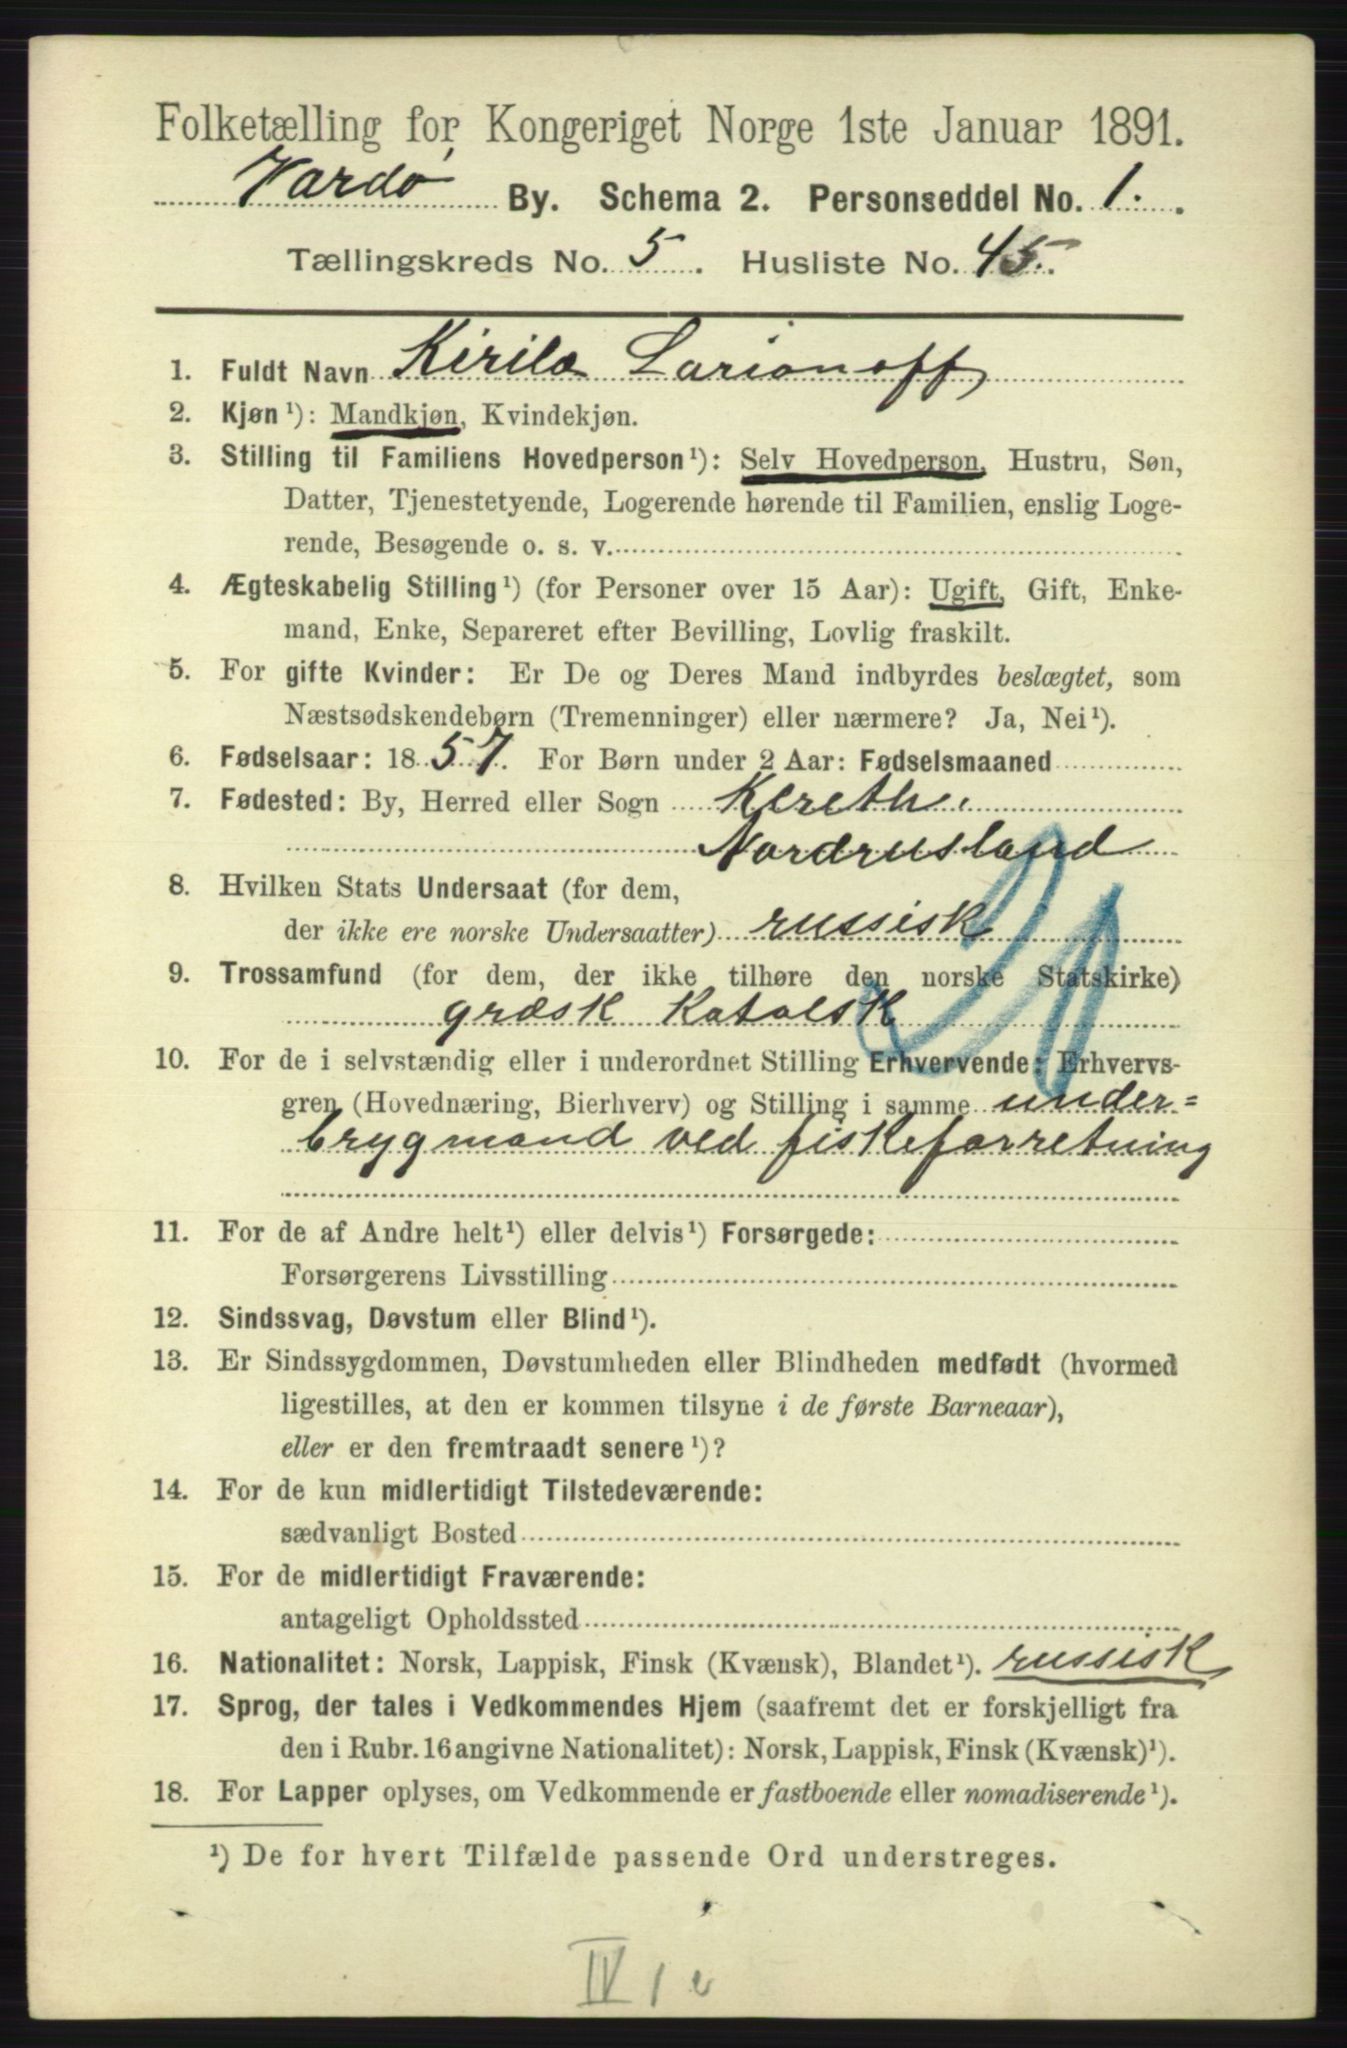 Folketælling for Kongeriget Norge 1ste Januar 1891.
Vardø By. Schema 2. Personseddel No. 1.
Tællingskreds No. 5. Husliste No. 45.
1. Fuldt Navn Kirila Larionoff
2. Kjøn¹): Mandkjøn, Kvindekjøn.
3. Stilling til Familiens Hovedperson¹): Selv Hovedperson, Hustru, Søn,
Datter, Tjenestetyende, Logerende hørende til Familien, enslig Loge-
rende, Besøgende o. s. v.
4. Ægteskabelig Stilling¹) (for Personer over 15 Aar): Ugift, Gift, Enke-
mand, Enke, Separeret efter Bevilling, Lovlig fraskilt.
5. For gifte Kvinder: Er De og Deres Mand indbyrdes beslægtet, som
Næstsødskendebørn (Tremenninger) eller nærmere? Ja, Nei¹).
6. Fødselsaar: 1857. For Børn under 2 Aar: Fødselsmaaned
7. Fødested: By, Herred eller Sogn Kereth.
Nordrusland
8. Hvilken Stats Undersaat (for dem,
der ikke ere norske Undersaatter) russisk
9. Trossamfund (for dem, der ikke tilhøre den norske Statskirke)
græsk Katolsk
10. For de i selvstændig eller i underordnet Stilling Erhvervende: Erhvervs-
gren (Hovednæring, Bierhverv) og Stilling i samme under=
brygmand ved fiskeforretning
11. For de af Andre helt¹) eller delvis¹) Forsørgede:
Forsørgerens Livsstilling
12. Sindssvag, Døvstum eller Blind¹).
13. Er Sindssygdommen, Døvstumheden eller Blindheden medfødt (hvormed
ligestilles, at den er kommen tilsyne i de første Barneaar),
eller er den fremtraadt senere¹)?
14. For de kun midlertidigt Tilstedeværende:
sædvanligt Bosted
15. For de midlertidigt Fraværende:
antageligt Opholdssted
16. Nationalitet: Norsk, Lappisk, Finsk (Kvænsk), Blandet¹). russisk
17. Sprog, der tales i Vedkommendes Hjem (saafremt det er forskjelligt fra
den i Rubr. 16 angivne Nationalitet): Norsk, Lappisk, Finsk (Kvænsk)¹).
18. For Lapper oplyses, om Vedkommende er fastboende eller nomadiserende¹).
¹) De for hvert Tilfælde passende Ord understreges.
IV 1